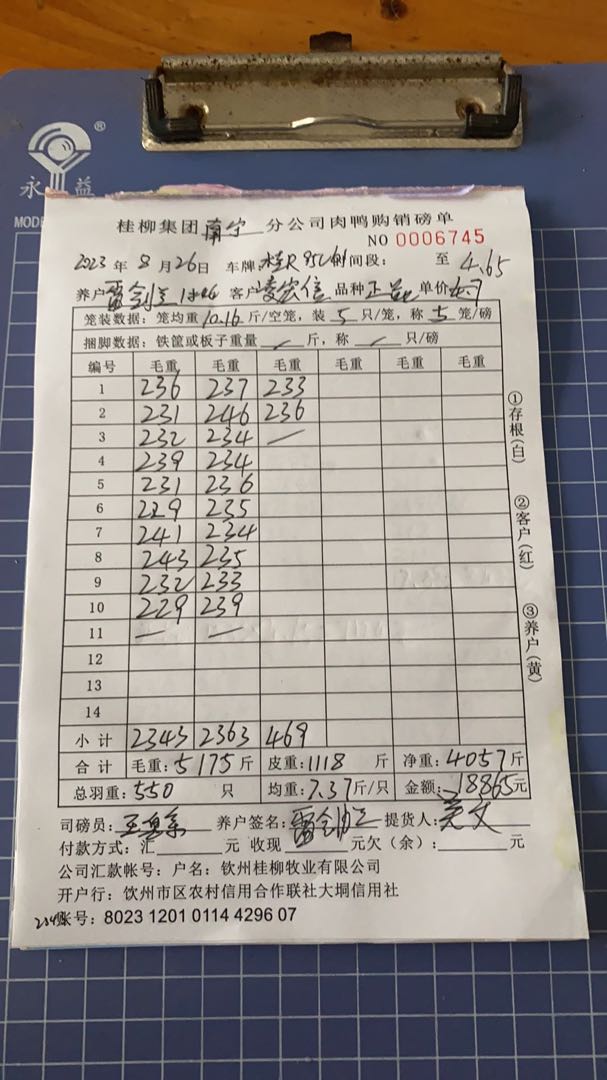 永 益
®
MODE
桂柳集团南宁分公司肉鸭购销磅单
NO 0006745
2023年8月26日 车牌:桂R 时间段: 至 4.65
养户雷剑兰 客户 品种正品 单价
笼装数据: 笼均重10.16斤/空笼, 装5只/笼, 称5笼/磅
捆脚数据: 铁筐或板子重量/斤, 称/只/磅
编号 毛重 毛重 毛重 毛重 毛重 毛重
1 236 237 233
2 231 246 236
3 232 234 /
4 239 234
5 231 236
6 229 235
7 241 234
8 243 235
9 232 233
10 229 239
11 — —
12
13
14
小计 2343 2363 469
合计 毛重:5175斤 皮重:1118斤 净重:4057斤
总羽重:550只 均重:7.37斤/只 金额:18865元
司磅员: 养户签名:雷剑兰 提货人:
付款方式: 汇 元 收现 元欠(余): 元
公司汇款帐号: 户名: 钦州桂柳牧业有限公司
开户行: 钦州市区农村信用合作联社大垌信用社
账号: 8023 1201 0114 4296 07
①存根(白)
②客户(红)
③养户(黄)